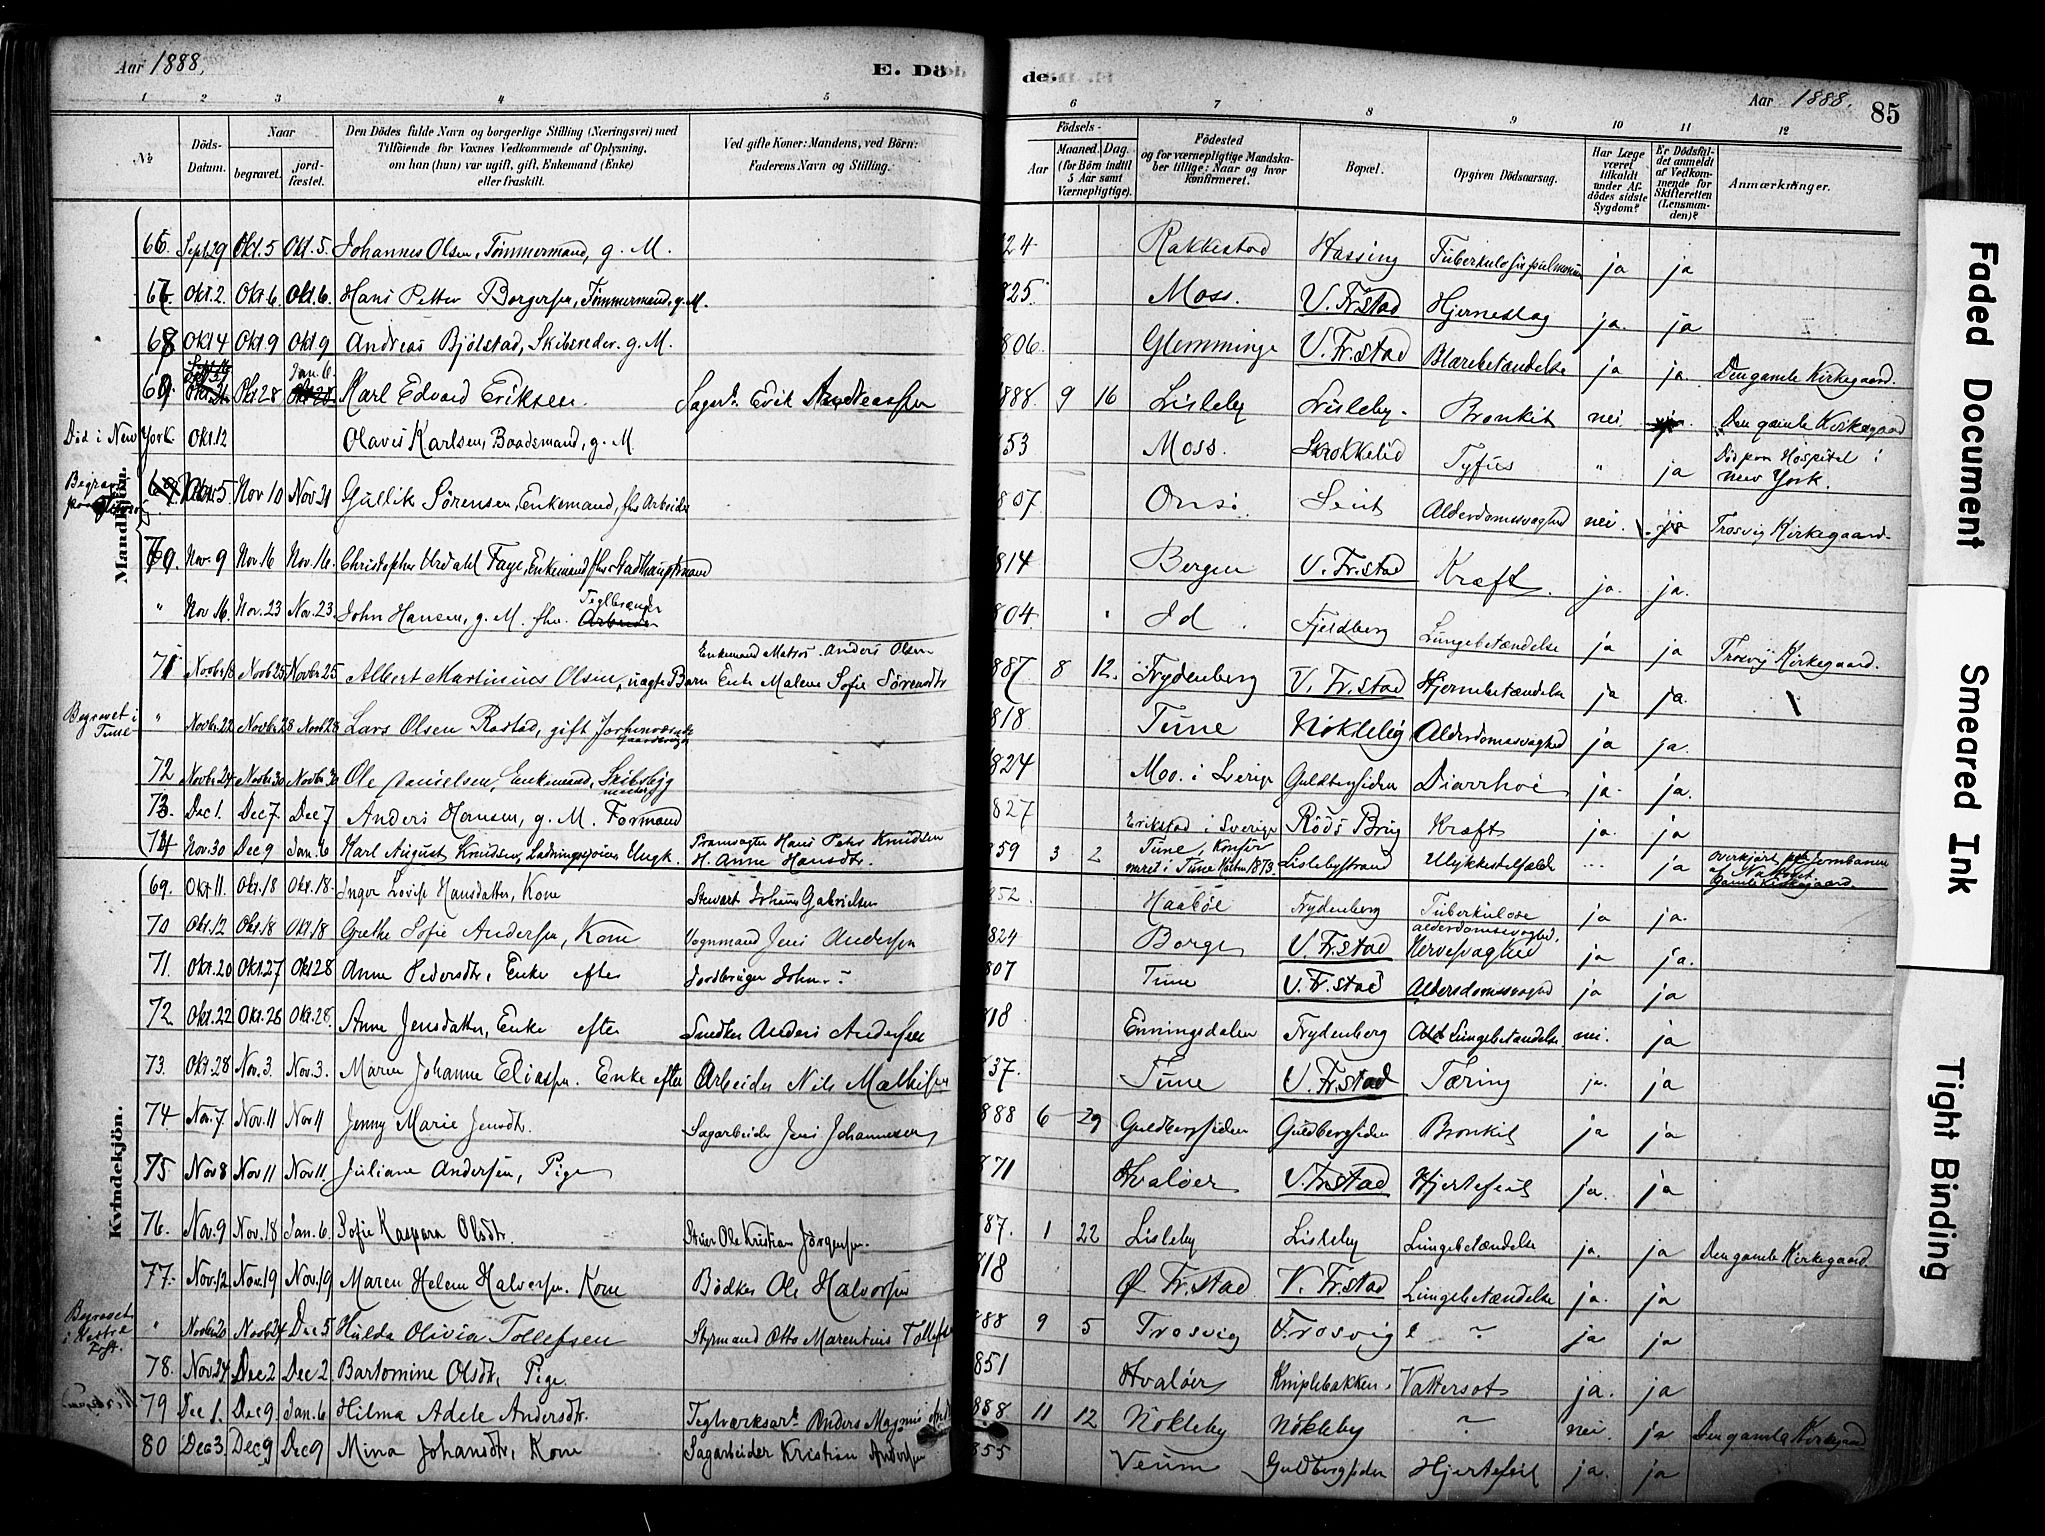 Aar 1888.
E. Dö
de.
Aar 1888.
85
1 2 3 4 5 6 7 8 9 10 11 12
№
Döds-Datum.
Naar
begravet.
jord-fæstet.
Den Dödes fulde Navn og borgerlige Stilling (Næringsvei) med
Tilföiende for Voxnes Vedkommende af Oplysning,
om han (hun) var ugift, gift, Enkemand (Enke)
eller fraskilt.
Ved gifte Koner: Mandens, ved Börn:
Faderens Navn og Stilling.
Födsels-
Aar
Maaned. Dag.
(for Börn indtil
5 Aar samt
Værnepligtige).
Födested
og for værnepligtige Mandska-
ber tillige: Naar og hvor
konfirmeret.
Bopæl.
Opgiven Dödsaarsag.
Har Læge
været
tilkaldt
under Af-
dödes sidste
Sygdom?
Er Dödsfal-
det anmeldt
af Vedkom-
mende for
Skifteretten
(Lensman-
den)?
Anmærkninger.
Mandkjön.
66 Sept.29 Okt.5 Okt.5. Johannes Olsen, Tömmermand, g. M. 824. Rakkestad Hassing Tuberkulosis pulmonum ja ja
67 Okt.2. Okt 6. Okt.6. Hans Petter Borgersen, Tömmermand, g. M. 825. Moss. V. Fr.stad Hjerneslag ja. ja
68 Okt 4 Okt 9 Okt 9 Andreas Bjölstad, Skibsreder. g. M. 806. Glemminge V. Fr.stad Blærebetændelse ja ja. Den gamle Kirkegaard.
69. Okt 28 Jan. 6. Karl Edvard Eriksen Sagarb. Erik Andreassen 1888. 9 16 Lisleby Lisleby. Bronkit nei. ja. Den gamle Kirkegaard
Död i New York. Okt.12 Olavis Karlsen, Baadsmand, g. M. 53 Moss. Skrokkelid Tyfus " ja Död paa Hospital i New York.
Nov.5 Nov 10 Nov 21 Gullik Sörensen, Enkemand, fhv Arbeider 807 Onsö. Leiit Alderdomssvaghed nei. ja Trosvig Kirkegaard.
70. Nov. 9 Nov.16 Nov.16. Christopher Urdahl Faye, Enkemand, fhv Stadthauptmand 814 Bergen V. Fr.stad Kræft. ja. ja.
" Nov 16. Nov. 23 Nov. 23. John Hansen, g. M. fhv. Teglbrænder 804. Id Fjeldberg Lungebetændelse ja ja Trosvig Kirkegaard.
71 Novbr.18 Novbr.25 Novbr.25 Albert Martinius Olsen, uægte Barn Enkemand Matros Anders Olsen Enke Malene Sofie Sörensdtr 887 8 12. Frydenberg V. Fr.stad Hjernebetændelse ja ja.
Begravet i Tune " Novbr.22 Novbr.28 Novbr.28 Lars Olsen Rostad, gift 818 Tune Nökleby Alderdomssvaghed ja ja.
72 Novbr.24 Novbr.30 Novbr.30 Ole Danielsen, Enkemand, Skibsbyg mester 824 Mo. i Sverige Guldbergsiden Diarrhoe ja. ja.
73. Dec 1. Dec 7. Dec 7 Anders Hansen, g. M. Formand 827 Erikstad i Sverige Röds Brug Kræft ja. ja
74 Nov.30 Dec 9 Jan. 6 Karl August Knudsen, Ungk. Hans Petter Knudsen H. Anne Hansdtr. 859 3 2 Tune, Konfir meret i Tune 1873. Lislebystrand Ulykkestilfælde ja Gamle Kirkegaard.
Kvindekjön.
69. Okt 11. Okt.18 Okt. 18. Inger Lovise Hansdatter, Kone Stewart Johans Gabrielsen 852. Haaböe Frydenberg Tuberkulose ja ja.
70 Okt.12 Okt 18 Okt.18 Grethe Sofie Andersen, Kone Vognmand Jens Andersen 824 Borge V. Fr.stad alderdomssvaghed, Nervesvaghed ja ja.
71. Okt.20 Okt.27 Okt 28 Anne Pedersdtr, Enke efter Jordbruger John 807 Tune V. Fr.stad Aldersdomssvaghed ja ja
72 Okt.22 Okt.28 Okt.28. Anne Jensdatter, Enke efter Snedker Anders Andersen 818 Enningsdalen Frydenberg Lungebetændelse nei. ja
73. Okt.28 Nov. 3. Nov. 3. Maren Johanne Eliassen. Enke efter Arbeider Nils Mathisen 837. Tune V. Fr.stad Tæring ja. ja
74 Nov. 7 Nov. 11 Nov 11 Jenny Marie Jensdtr. Sagarbeider Jens Johannesen 888 6 29 Guldbergsiden Guldbergsiden Bronkit ja ja
75 Nov 8 Nov 11 Nov 11. Juliane Andersen, Pige 871 Hvalöer V. Fr.stad Hjertefeil ja. ja
76. Nov. 9 Nov. 18 Jan. 6 Sofie Kaspara Olsdtr. Ole Kristian Jörgensen. 87. 1 22 Lisleby Lisleby Lungebetændelse ja. ja Den gamle Kirkegaard.
77. Nov. 12 Nov. 19 Nov. 19 Maren Helene Halvorsen. Kone Bödker Ole Halvorsen 818 Ø Fr.stad V. Fr.stad Lungebetændelse ja. ja
Begravet i " Novbr.20 Novbr.24 Dec 5 Hulda Olivia Tollefsen Styrmand Otto Marentius Tollefsen 888 9 5 Trosvig Trosvig ? ja ja
78. Nov. 24 Dec 2 Dec 2 Bartomine Olsdtr, Pige. 851 Hvalöer Kniplebakken. Vattersot ja. ja
79 Dec 1. Dec 9 Jan. 6 Hilma Adele Andersdtr. Teglværksarb. Anders Magnus 888 11 12 Nökleby Nökleby nei. ja Den gamle Kirkegaard
80 Dec 3. Dec 9 Dec 9 Mina Johansdtr, Kone Sagarbeider Kristian Andersen 855 Veum Guldbergsiden Hjertefeil ja. ja
Faded Document
Smeared Ink
Tight Binding